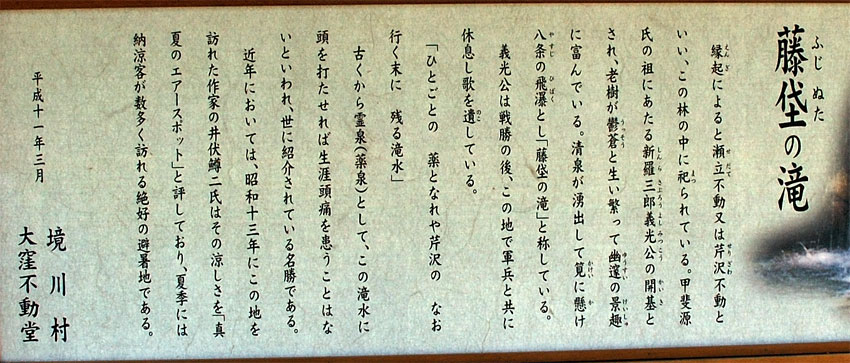 ふじ ぬた
藤垈の滝
縁起によると瀬立不動又は芹沢不動と
いい、この林の中に祀られている。甲斐源
氏の祖にあたる新羅三郎義光公の開基と
され、老樹が鬱蒼と生い繁って幽邃の景趣
に富んでいる。清泉が湧出して筧に懸け
八条の飛瀑とし「藤垈の滝」と称している。
義光公は戦勝の後、この地で軍兵と共に
休息し歌を遺している。
「ひとごとの 薬となれや芹沢の なお
行く末に 残る滝水」
古くから霊泉(薬泉)として、この滝水に
頭を打たせれば生涯頭痛を患うことはな
いといわれ、世に紹介されている名勝である。
近年においては、昭和十三年にこの地を
訪れた作家の井伏鱒二氏はその涼しさを「真
夏のエアースポット」と評しており、夏季には
納涼客が数多く訪れる絶好の避暑地である。
平成十一年三月
境川村
大窪不動堂